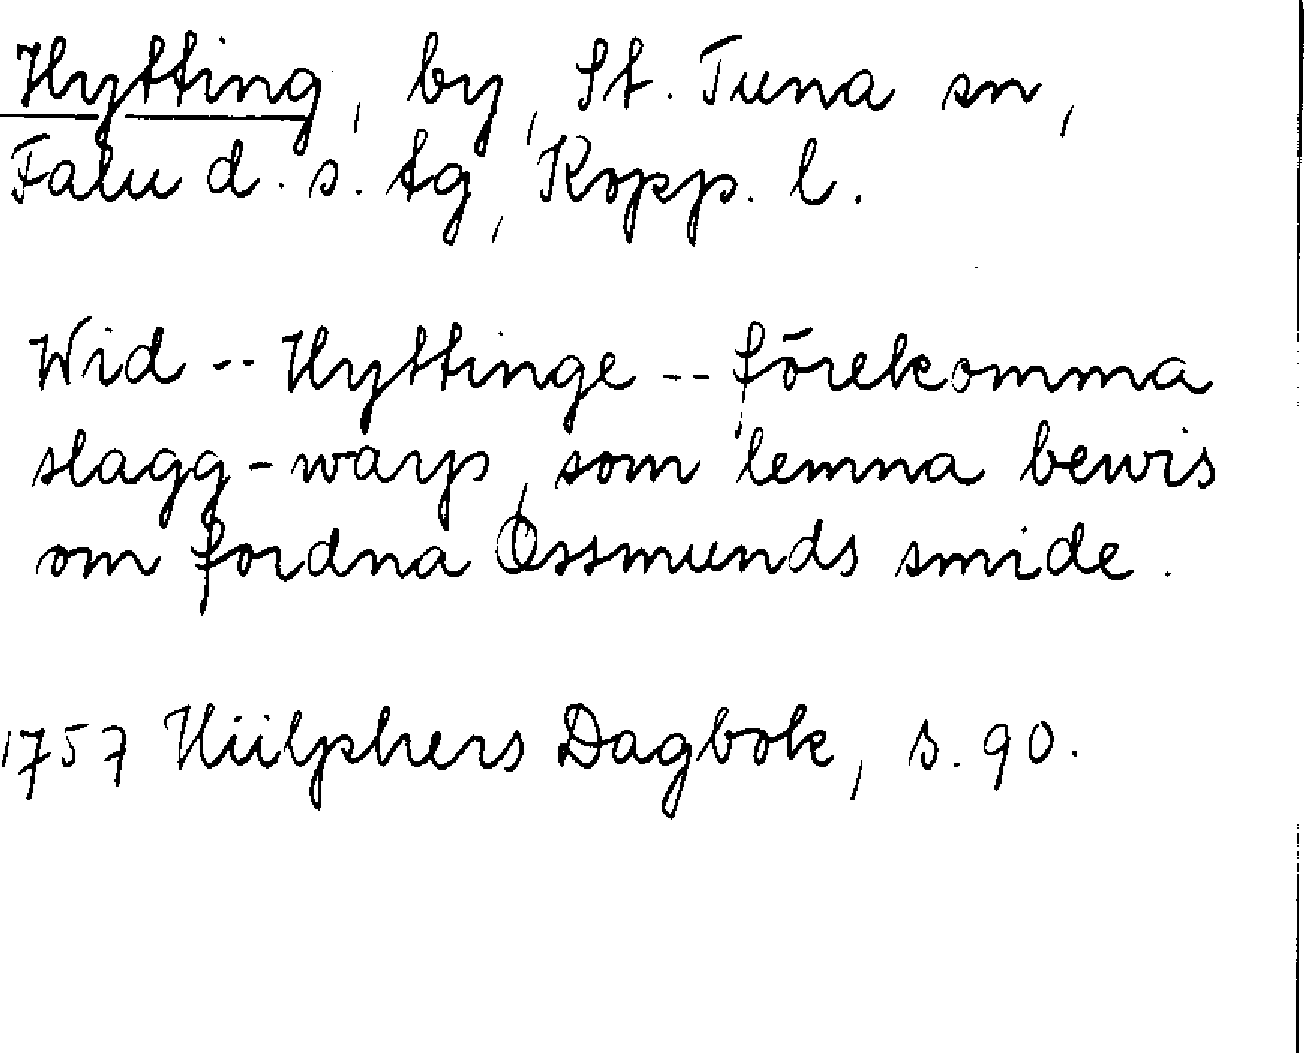 Hytting, by, St. Tuna sn,
Falu d. s. tg, Kopp. l.
Wid -- Hyttinge -- förekomma
slagg-warp, som lemna bewis
om fordna Ossmunds smide.
1757 Hülphers Dagbok, s. 90.